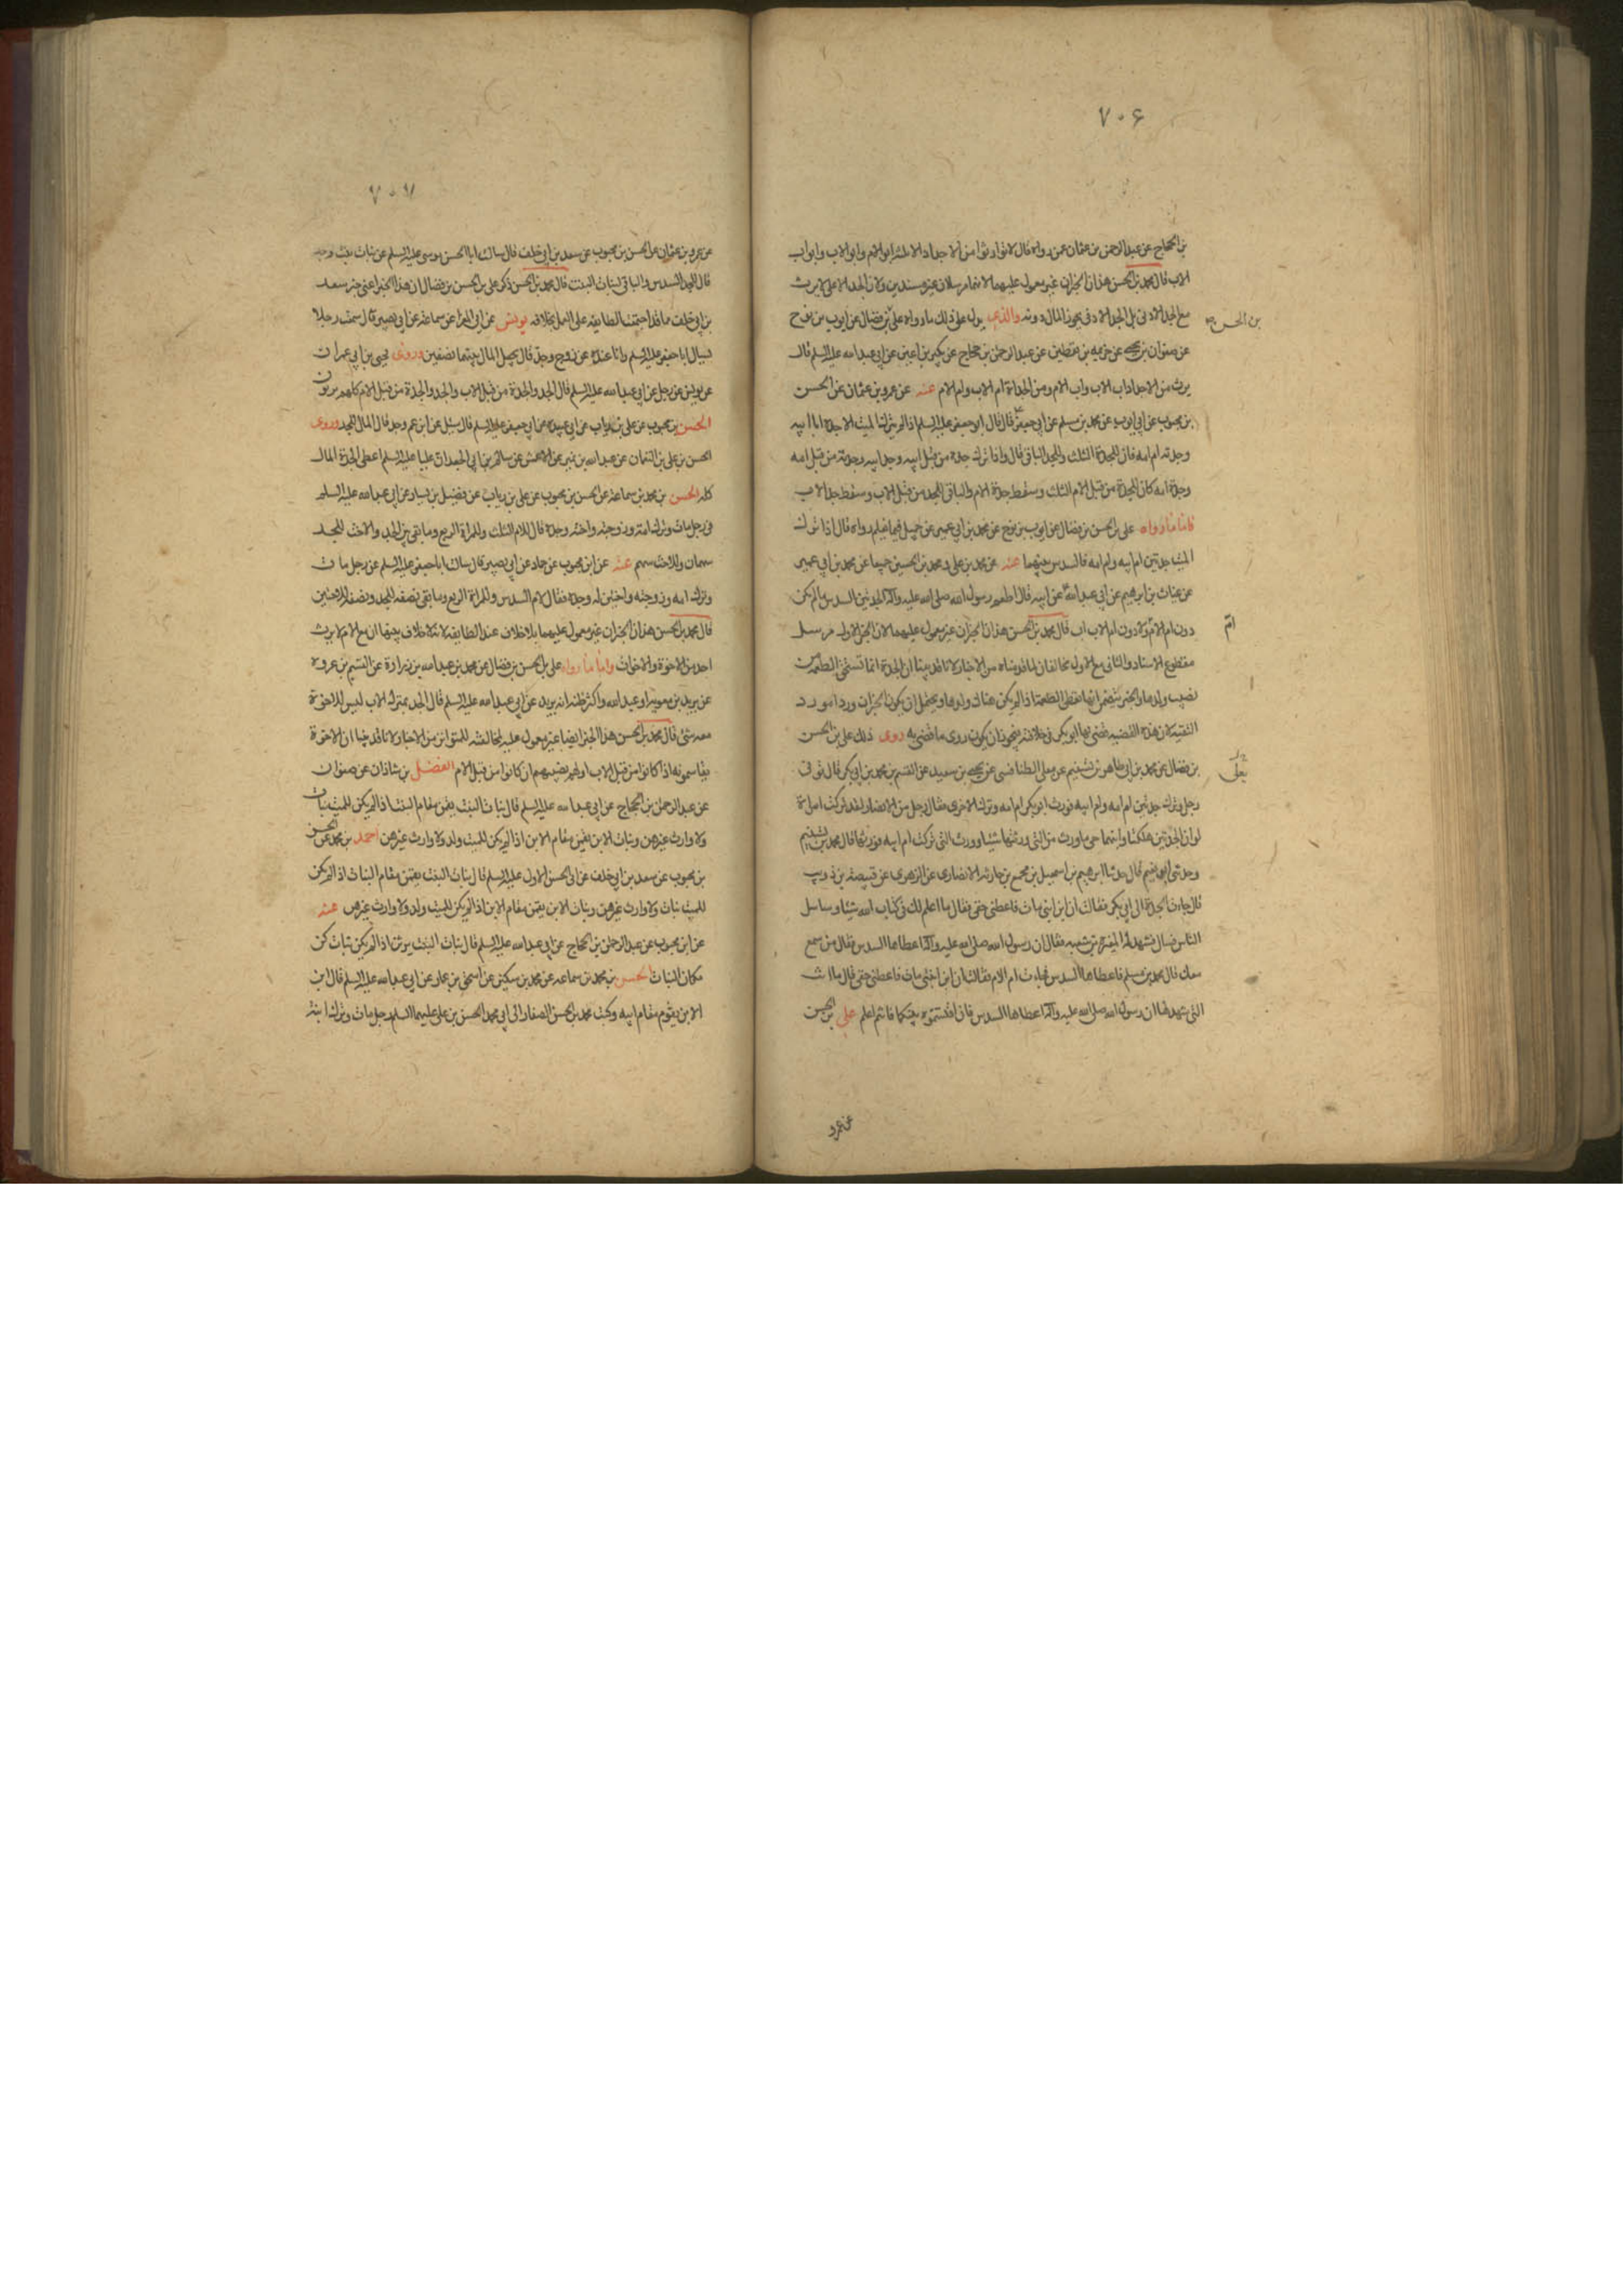 ۷۰۶
بن الحجاج عن عبد الرحمن بن عثمان عمن رواه قال لا تورثوا من الاجداد الا ثلثة ابو الام وابو الاب وابو اب
الاب قال محمد بن الحسن هذان الخبران غير معول عليهما لانهما مرسلان غير مسندين ولان الجد الاعلى لا يرث
مع الجد الادنى بل الجد الادنى يحوز المال دونه والذى يدل على ذلك ما رواه على بن فضال عن ايوب بن نوح
بن الحسن صح
عن صفوان بن يحيى عن خزيمة بن يقطين عن عبد الرحمن بن حجاج عن بكير بن اعين عن ابى عبد الله عليه السلم قال
يرث من الاجداد اب الاب واب الام ومن الجدات ام الاب وام الام عنه عن عمرو بن عثمان عن الحسن
بن محبوب عن ابى ايوب عن محمد بن مسلم عن ابى جعفر قال قال ابو جعفر عليه السلم اذا لم يترك الميت الا جده ابا ابيه
وجدته ام امه فان للجدة الثلث وللجد الباقى قال واذا ترك جده من قبل ابيه وجد ابيه وجدته من قبل امه
وجدة امه كان للجدة من قبل الام الثلث وسقط جدة الام والباقى للجد من قبل الاب وسقط جد الاب
فاما ما رواه على بن الحسن بن فضال عن ايوب بن نوح عن محمد بن ابى عمير عن جميل فيما يعلم رواه قال اذا ترك
الميت جدتين ام ابيه وام امه فالسدس بينهما عنه عن محمد بن على ومحمد بن الحسين جميعا عن محمد بن ابى عمير
عن غياث بن ابرهيم عن ابى عبد الله عن ابيه قال اطعم رسول الله صلى الله عليه وآله الجدتين السدس ما لم يكن
دون ام الام ولا دون ام الاب اب قال محمد بن الحسن هذان الخبران غير معول عليهما لان الخبر الاول مرسل
ام
مقطوع الاسناد والثانى مع الاول مخالفان لما قدمناه من الاخبار لانا قد بينا ان الجدة انما تستحق الطعمة من
نصيب ولدها والخبر يتضمن انها تعطى الطعمة اذا لم يكن هناك ولدها ويحتمل ان يكون الخبران وردا مورد
التقية لان هذه القضية قضى بها ابو بكر فى خلافته فيجوز ان يكون روى ما قضى به روى ذلك على بن الحسن
بن فضال عن محمد بن ابى طاهر بن تسنيم عن معلى الطنافسى عن يحيى بن سعيد عن القسم بن محمد بن ابى بكر قال توفى
يعلى
رجل وترك جدتين ام امه وام ابيه فورث ابو بكر ام امه وترك الاخرى فقال رجل من الانصار لقد تركت امراة
لو ان الجدتين هلكتا وابنهما حى ما ورث من التى ورثتها شيئا وورث التى تركت ام ابيه فورثها قال محمد بن تسنيم
وحدثنى ابو نعيم قال حدثنا ابرهيم بن اسمعيل بن مجمع بن حارثة الانصارى عن الزهرى عن قبيصة بن ذويب
قال جاءت الجدة الى ابى بكر فقالت ان ابن ابنى مات فاعطنى حقى فقال ما اعلم لك فى كتاب الله شيئا وساسل
الناس فسال فشهد له المغيرة بن شعبة فقال ان رسول الله صلى الله عليه وآله اعطاها السدس فقال من سمع
معك قال محمد بن مسلم فاعطاها السدس فجاءت ام الام فقالت ان ابن ابنتى مات فاعطنى حقى قال ما انت
التى شهد لها ان رسول الله صلى الله عليه وآله اعطاها السدس فان اقتسمتموه بينكما فانتم اعلم على بن الحسن
عن عمرو
۷۰۷
عن عمرو بن عثمان عن الحسن بن محبوب عن سعد بن ابى خلف قال سالت ابا الحسن موسى عليه السلم عن بنات بنت وجد
قال للجد السدس والباقى لبنات البنت قال محمد بن الحسن ذكر على بن الحسن بن فضال ان هذا الخبر اعنى خبر سعد
بن ابى خلف ما قد اجتمعت الطايفة على العمل بخلافه يونس عن ابى المعزا عن سماعة عن ابى بصير قال سمعت رجلا
يسال ابا جعفر عليه السلم وانا عنده عن زوج وجد قال يجعل المال بينهما نصفين وروى يحيى بن ابى عمران
عن يونس عن رجل عن ابى عبد الله عليه السلم قال الجد والجدة من قبل الاب والجد والجدة من قبل الام كلهم يرثون
الحسن بن محبوب عن على بن رياب عن ابى عبيدة عن ابى جعفر عليه السلم قال سئل عن ابن عم وجد قال المال للجد وروى
الحسن بن على بن النعمان عن عبد الله بن نمير عن الاعمش عن سالم بن ابى الجعد ان عليا عليه السلم اعطى الجدة المال
كله الحسن بن محمد بن سماعة عن الحسن بن محبوب عن على بن رياب عن فضيل بن يسار عن ابى عبد الله عليه السلم
فى رجل مات وترك امه وزوجته واخته وجده قال للام الثلث وللمراة الربع وما بقى بين الجد والاخت للجد
سهمان وللاخت سهم عنه عن ابن محبوب عن حماد عن ابى بصير قال سالت ابا جعفر عليه السلم عن رجل مات
وترك امه وزوجته واختين له وجده فقال للام السدس وللمراة الربع وما بقى نصفه للجد ونصفه للاختين
قال محمد بن الحسن هذان الخبران غير معول عليهما بلا خلاف عند الطايفة لانه لا خلاف بينها ان مع الام لا يرث
احد من الاخوة والاخوات واما ما رواه على بن الحسن بن فضال عن محمد بن عبد الله بن زرارة عن القسم بن عروة
عن بريد بن معوية او عبد الله واكثر ظنه انه بريد عن ابى عبد الله عليه السلم قال الجد بمنزلة الاب ليس للاخوة
معه شئ قال محمد بن الحسن هذا الخبر ايضا غير معول عليه لمخالفته للمتواتر من الاخبار لانا قد بينا ان الاخوة
يقاسمونه اذا كانوا من قبل الاب او لهم نصيبهم ان كانوا من قبل الام الفضل بن شاذان عن صفوان
عن عبد الرحمن بن الحجاج عن ابى عبد الله عليه السلم قال بنات البنت يقمن مقام البنت اذا لم يكن للميت بنات
ولا وارث غيرهن وبنات الابن يقمن مقام الابن اذا لم يكن للميت ولد ولا وارث غيرهن احمد بن محمد عن الحسن
بن محبوب عن سعد بن ابى خلف عن ابى الحسن الاول عليه السلم قال بنات البنت يقمن مقام البنات اذا لم يكن
للميت بنات ولا وارث غيرهن وبنات الابن يقمن مقام الابن اذا لم يكن للميت ولد ولا وارث غيرهن عنه
عن ابن محبوب عن عبد الرحمن بن الحجاج عن ابى عبد الله عليه السلم قال بنات البنت يرثن اذا لم يكن بنات كن
مكان البنات الحسن بن محمد بن سماعة عن محمد بن سكين عن اسحق بن عمار عن ابى عبد الله عليه السلم قال ابن
الابن يقوم مقام ابيه وكتب محمد بن الحسن الصفار الى ابى محمد الحسن بن على عليهما السلم رجل مات وترك ابنة